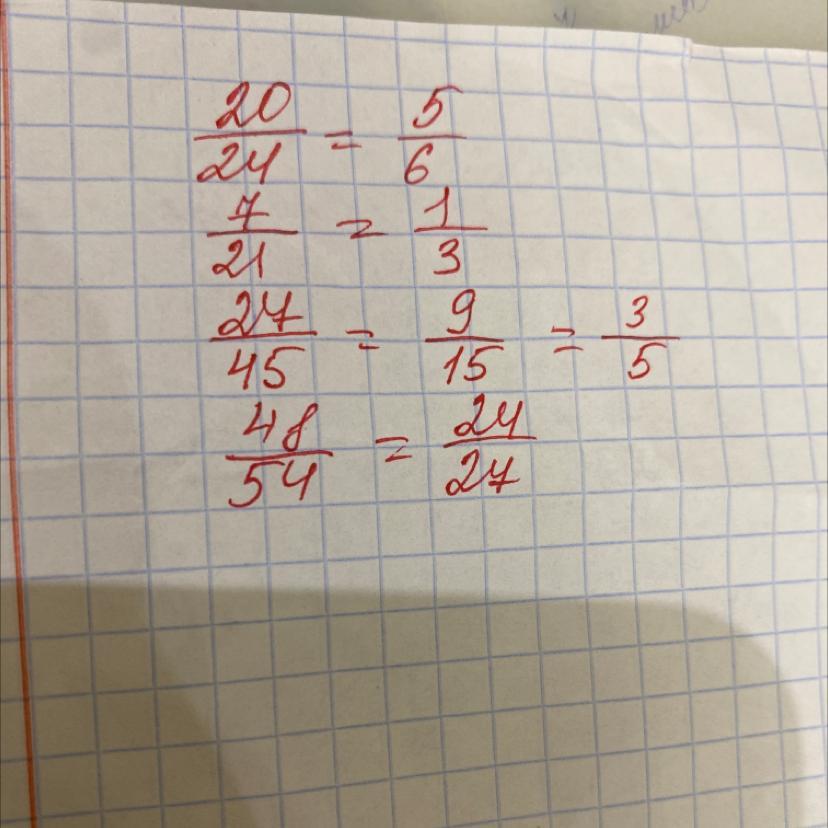 20/24 = 5/6
7/21 = 1/3
27/45 = 9/15 = 3/5
48/54 = 24/27